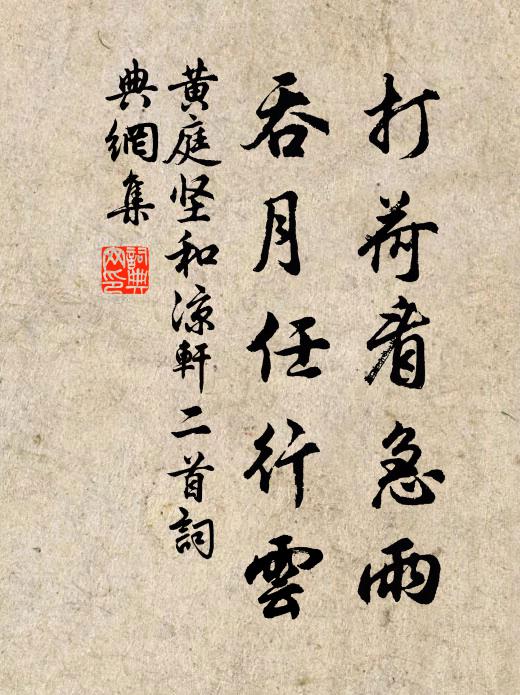 打荷看急雨
吞月任行雲
黄庭坚和凉軒二首詞
典網集
詞典